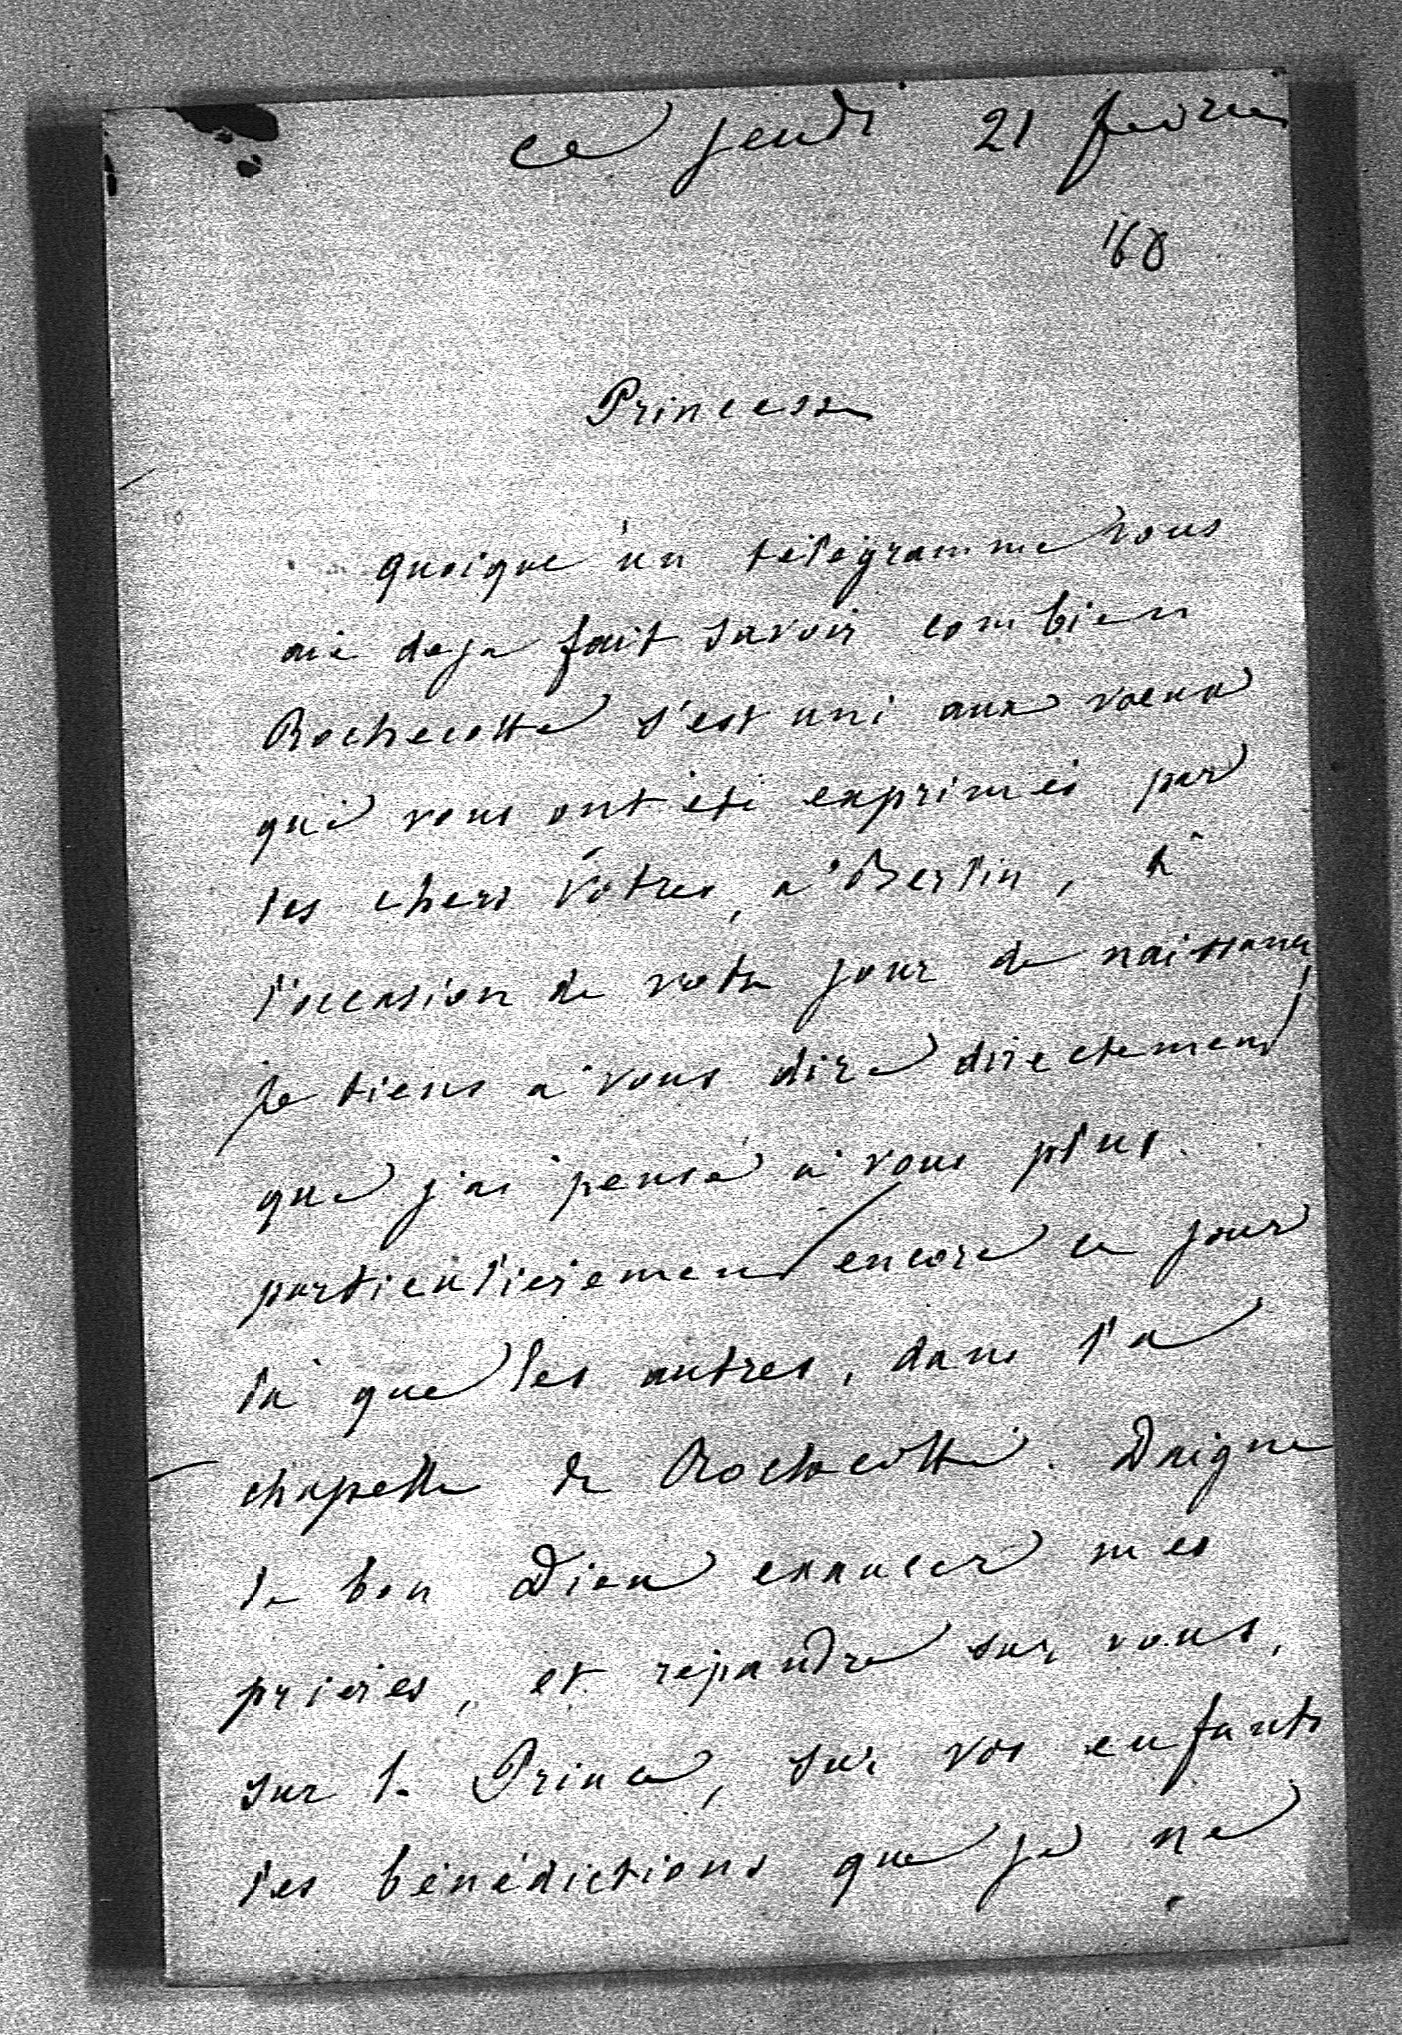 ce jeudi 21 fevrier
168
Princesse
quoique un télégramme vous
aie deja fait savoir combien
Rochecotte s'est uni aux voeux
qui vous ont été exprimés par
les chers Vôtres, a Berlin, à
l'occasion de votre jour de naissance,
je tiens à vous dire directement
que j'ai pensé à vous plus
particulièrement encore ce jour
là que les autres, dans la
chapelle de Rochecotte. Daigne
le bon Dieu exaucer mes
prières, et répandre sur vous,
sur le Prince, sur vos enfants
les bénédictions que je ne